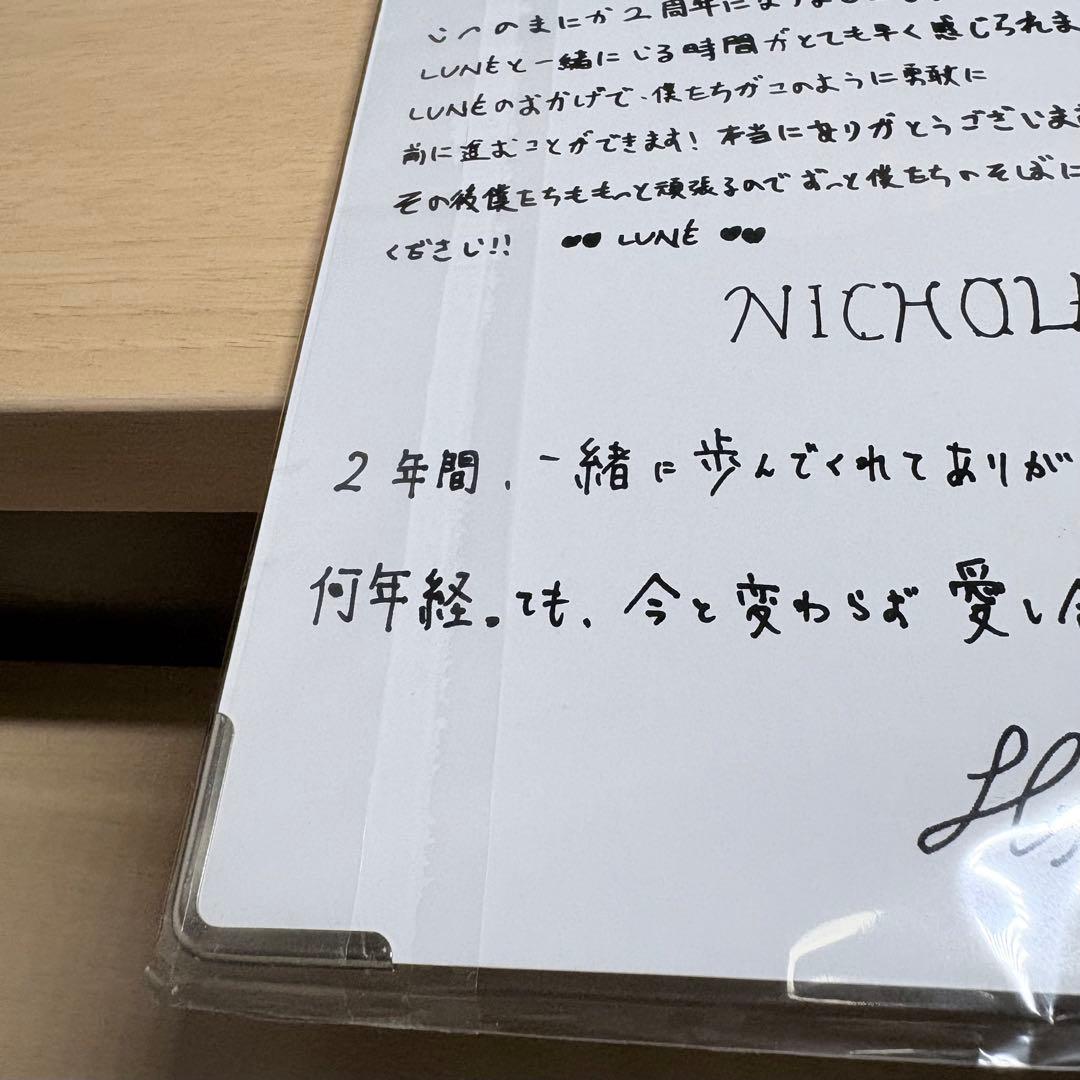 いつのまにか2周年になりました
LUNEと一緒にいる時間がとても早く感じられま
LUNEのおかげで、僕たちがこのように勇敢に
前に進むことができます! 本当にありがとうございます
その後僕たちももっと頑張るのでずっと僕たちのそばに
ください!! ♥♥ LUNE ♥♥
NICHOL
2年間、一緒に歩んでくれてありが
何年経っても、今と変わらず愛し合